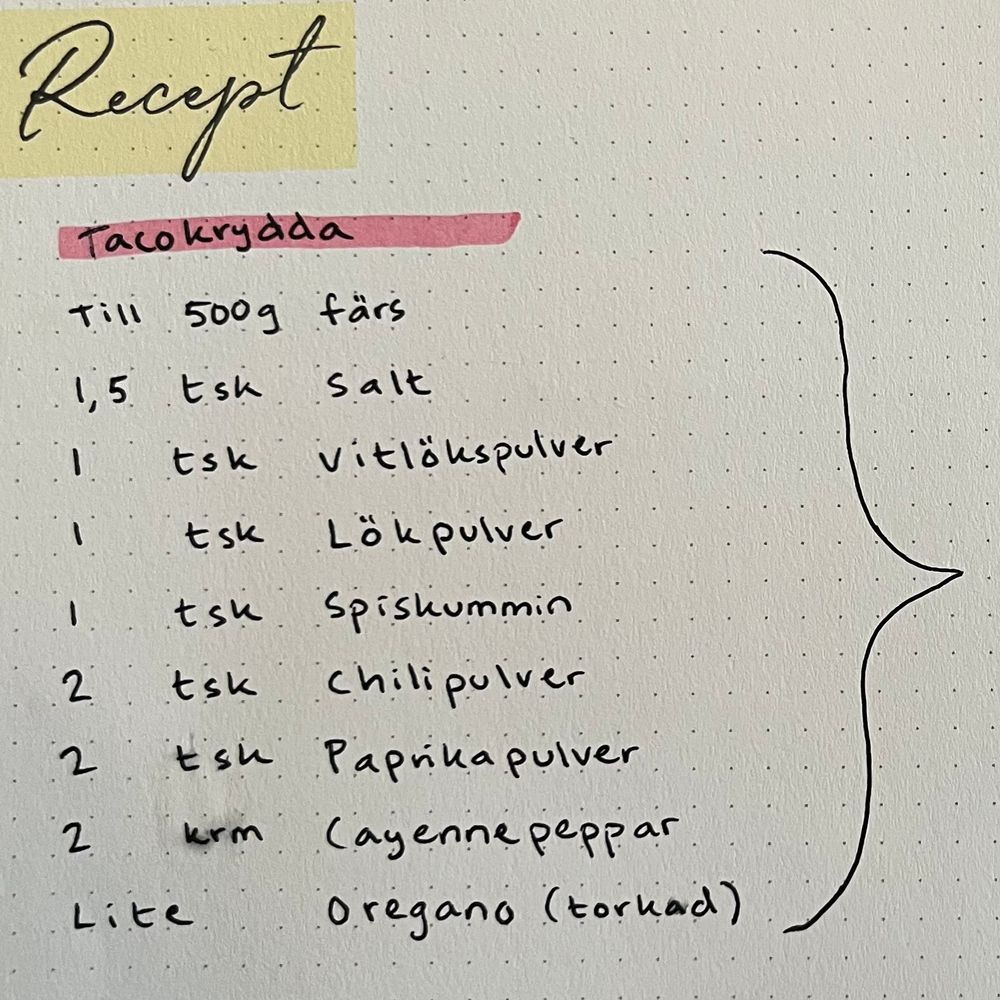 Recept
Tacokrydda
Till 500g färs
1,5 tsk Salt
1 tsk Vitlökspulver
1 tsk Lökpulver
1 tsk Spiskummin
2 tsk Chilipulver
2 tsk Paprikapulver
2 krm Cayennepeppar
Lite Oregano (torkad)